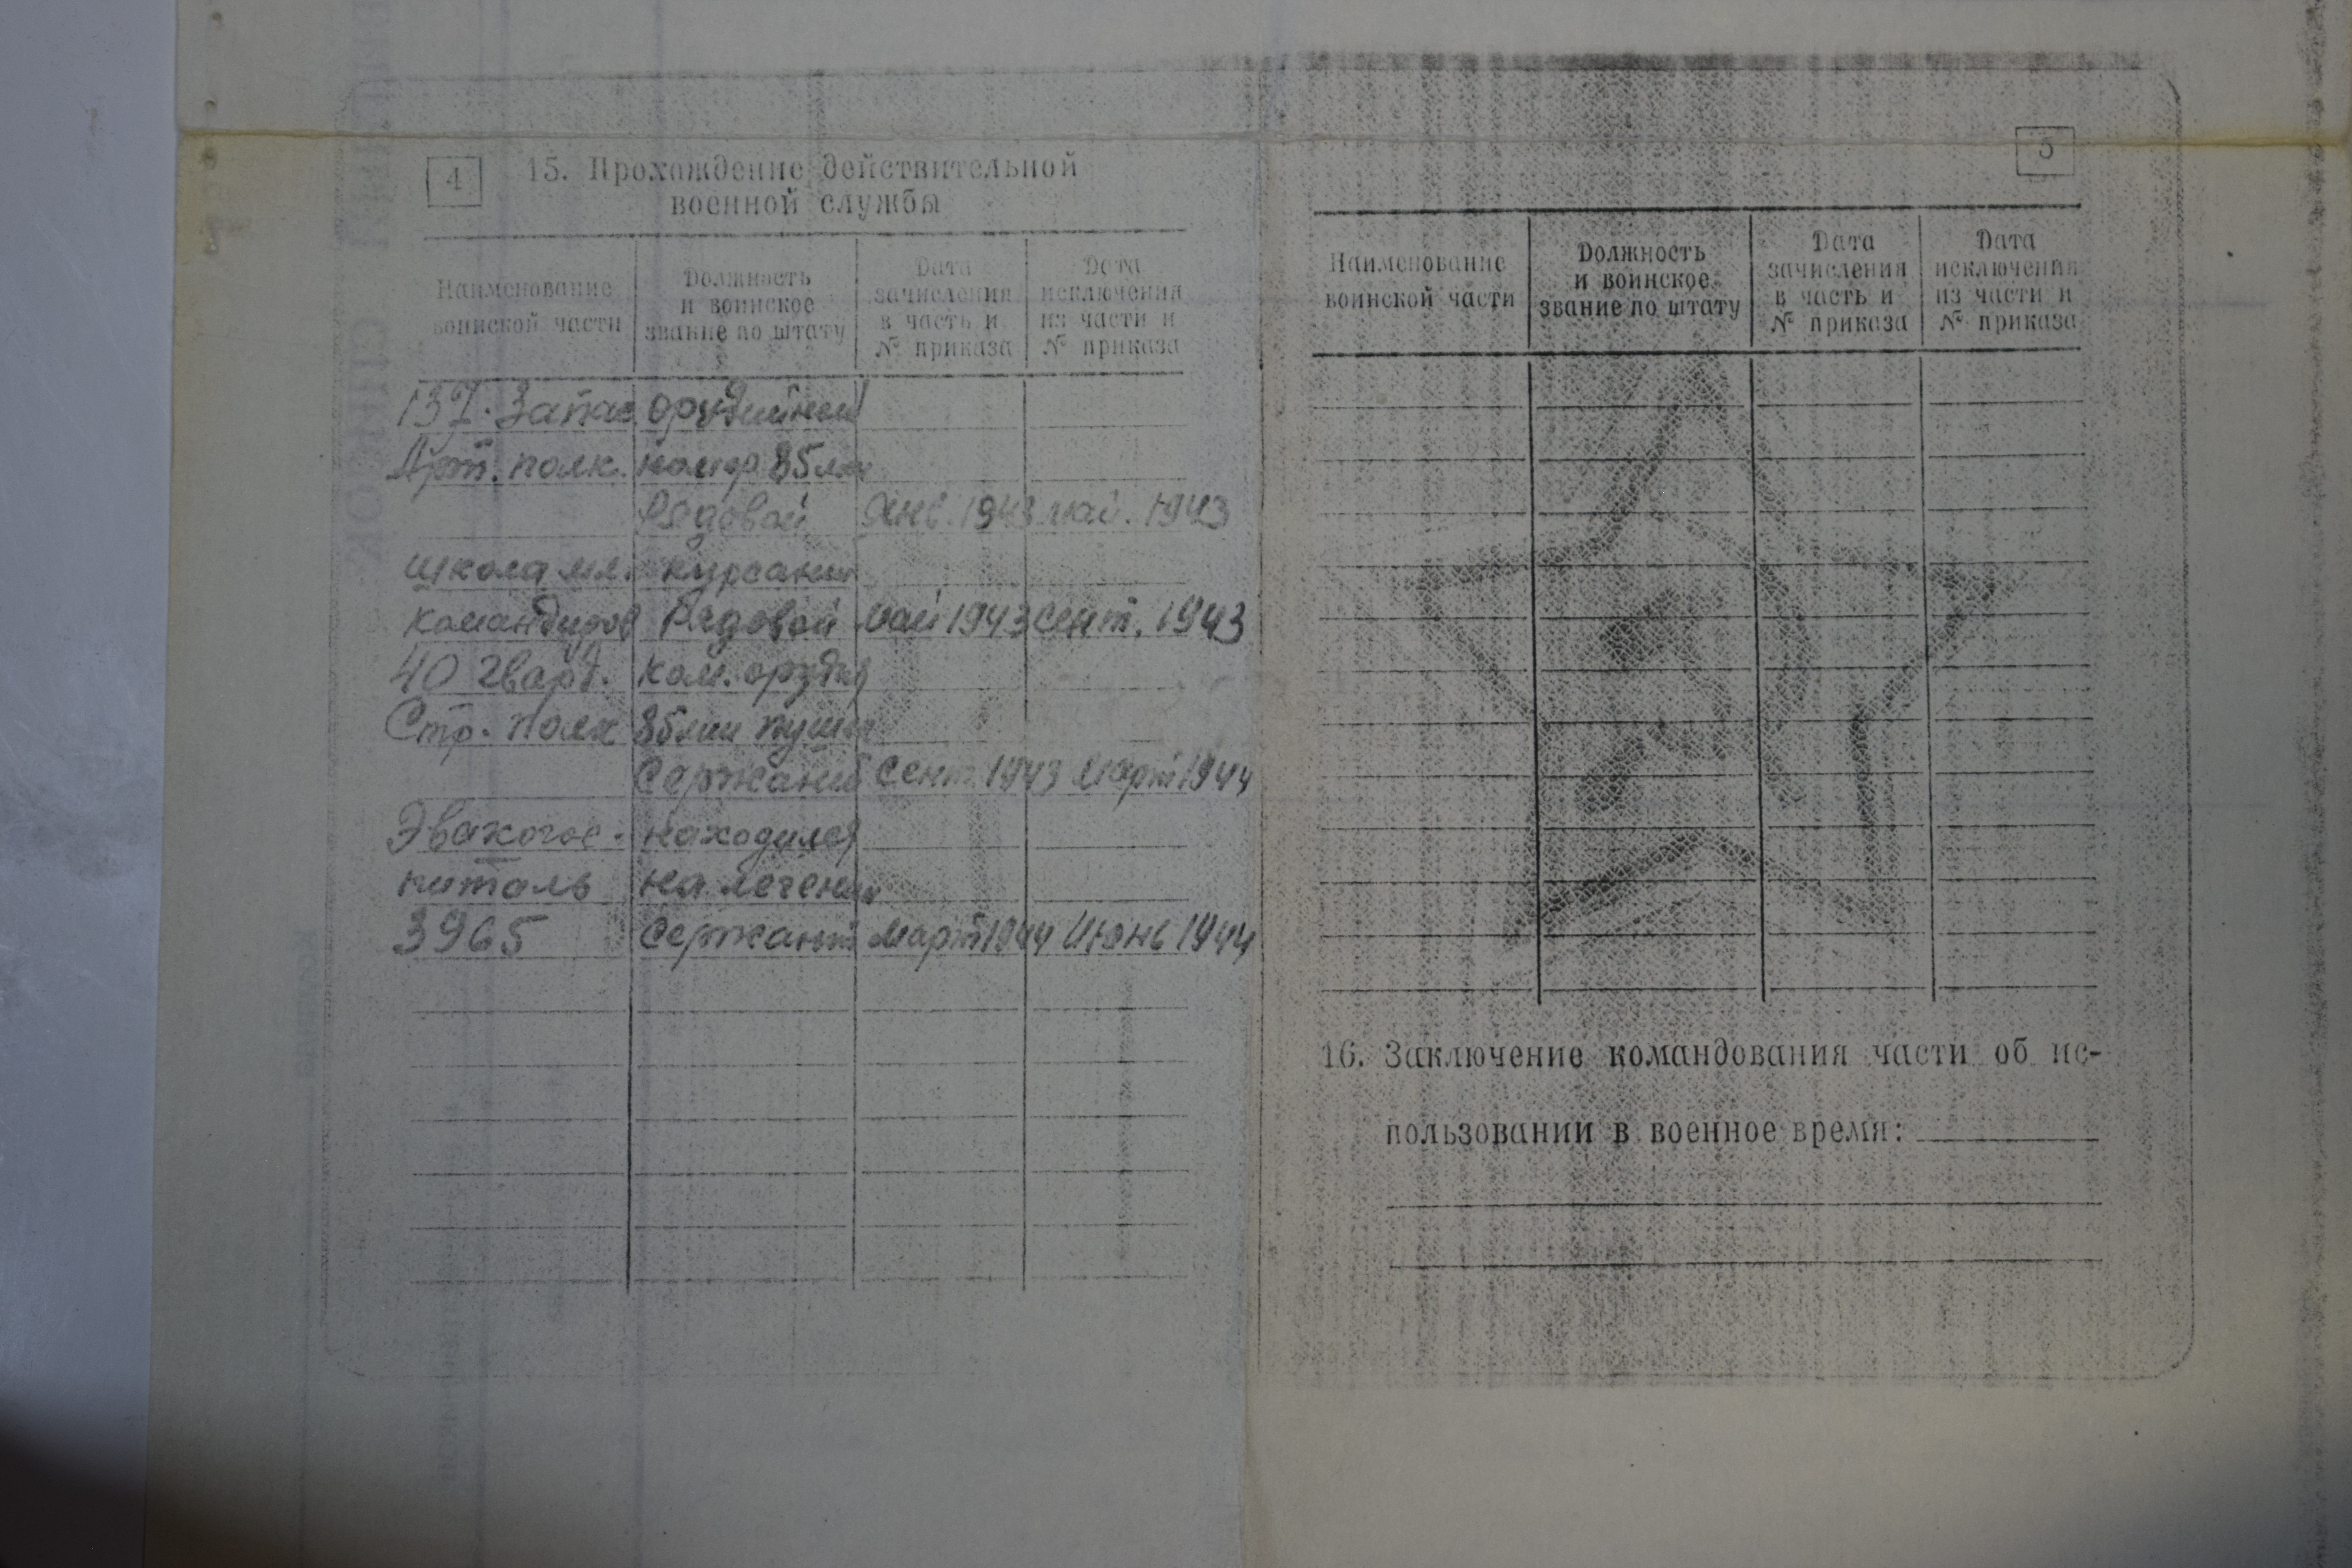 4
15. Прохождение действительной
военной службы
Наименование
воинской части
Должность
и воинское
звание по штату
Дата
зачисления
в часть и
№ приказа
Дата
исключения
из части и
№ приказа
Запас орудийный
Арт. полк. номер 85мм
Рядовой Янв. 1943 май. 1943
школа мл. курсант
командиров Рядовой Май 1943 сент. 1943
40 гвард. ком. орудия
Стр. полк 85мм пушки
Сержант сент. 1943 март 1944
Эвакогос- находился
питаль на лечении
3965 Сержант март 1944 Июнь 1944
5
Наименование
воинской части
Должность
и воинское
звание по штату
Дата
зачисления
в часть и
№ приказа
Дата
исключения
из части и
№ приказа
16. Заключение командования части об ис-
пользовании в военное время: